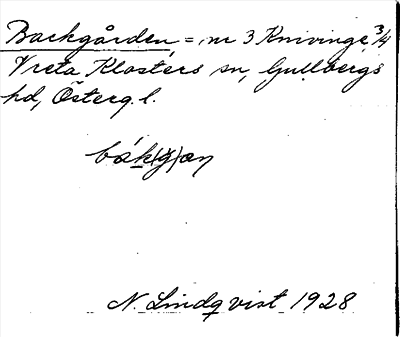 Backgården, = nr 3 Knivinge, 3/4
Vreta Klosters sn, Gullbergs
hd, Österg. l.
N. Lindqvist 1928